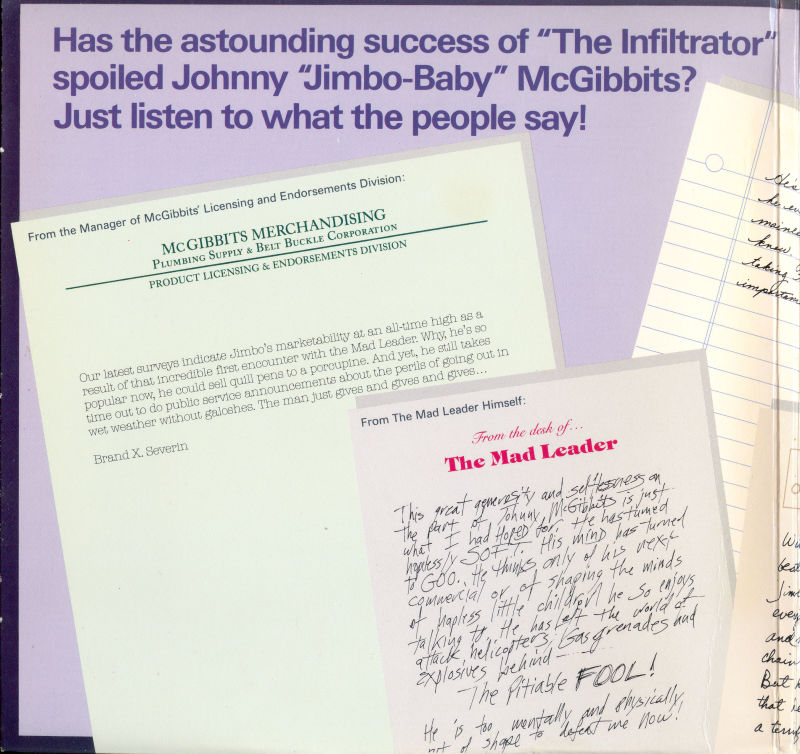 Has the astounding success of “The Infiltrator”
spoiled Johnny “Jimbo-Baby” McGibbits?
Just listen to what the people say!
From the Manager of McGibbits’ Licensing and Endorsements Division:
McGIBBITS MERCHANDISING
PLUMBING SUPPLY & BELT BUCKLE CORPORATION
PRODUCT LICENSING & ENDORSEMENTS DIVISION
Our latest surveys indicate Jimbo’s marketability at an all-time high as a
result of that incredible first encounter with the Mad Leader. Why, he’s so
popular now, he could sell quill pens to a porcupine. And yet, he still takes
time out to do public service announcements about the perils of going out in
wet weather without galoshes. The man just gives and gives and gives...
Brand X. Severin
From The Mad Leader Himself:
From the desk of...
The Mad Leader
This great generosity and selflessness on
the part of Johnny McGibbits is just
what I had HOPED for. He has turned
hopelessly SOFT! His mind has turned
to GOO. He thinks only of his next
commercial or of shaping the minds
of hapless little children he so enjoys
talking to. He has left the world of
attack helicopters, Gas grenades and
explosives behind
The Pitiable FOOL!
He is too mentally and physically
out of shape to defeat me now!
He's
he
knew
taking
important
every
and
chain
But
that is